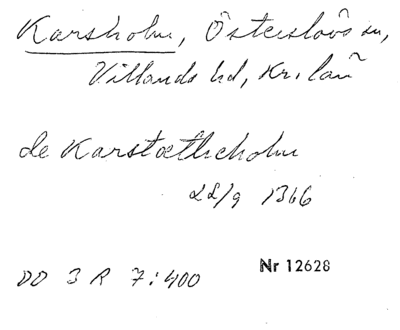 Karsholm, Österslövs sn,
Villands hd, Kr. län
de Karstætheholm
22/9 1366
DD 3 R 7:400
Nr 12628